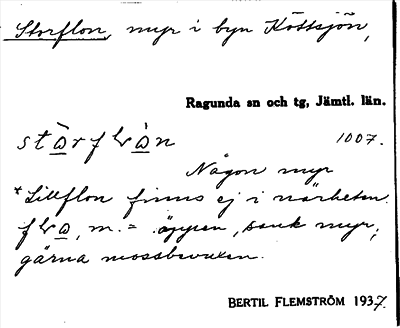 Storflon, myr i byn Köttsjön,
Ragunda sn och tg, Jämtl. län.
1007.
Någon myr
*Lillflon finns ej i närheten.
m. = öppen, sank myr,
gärna mossbevuxen.
BERTIL FLEMSTRÖM 1937.